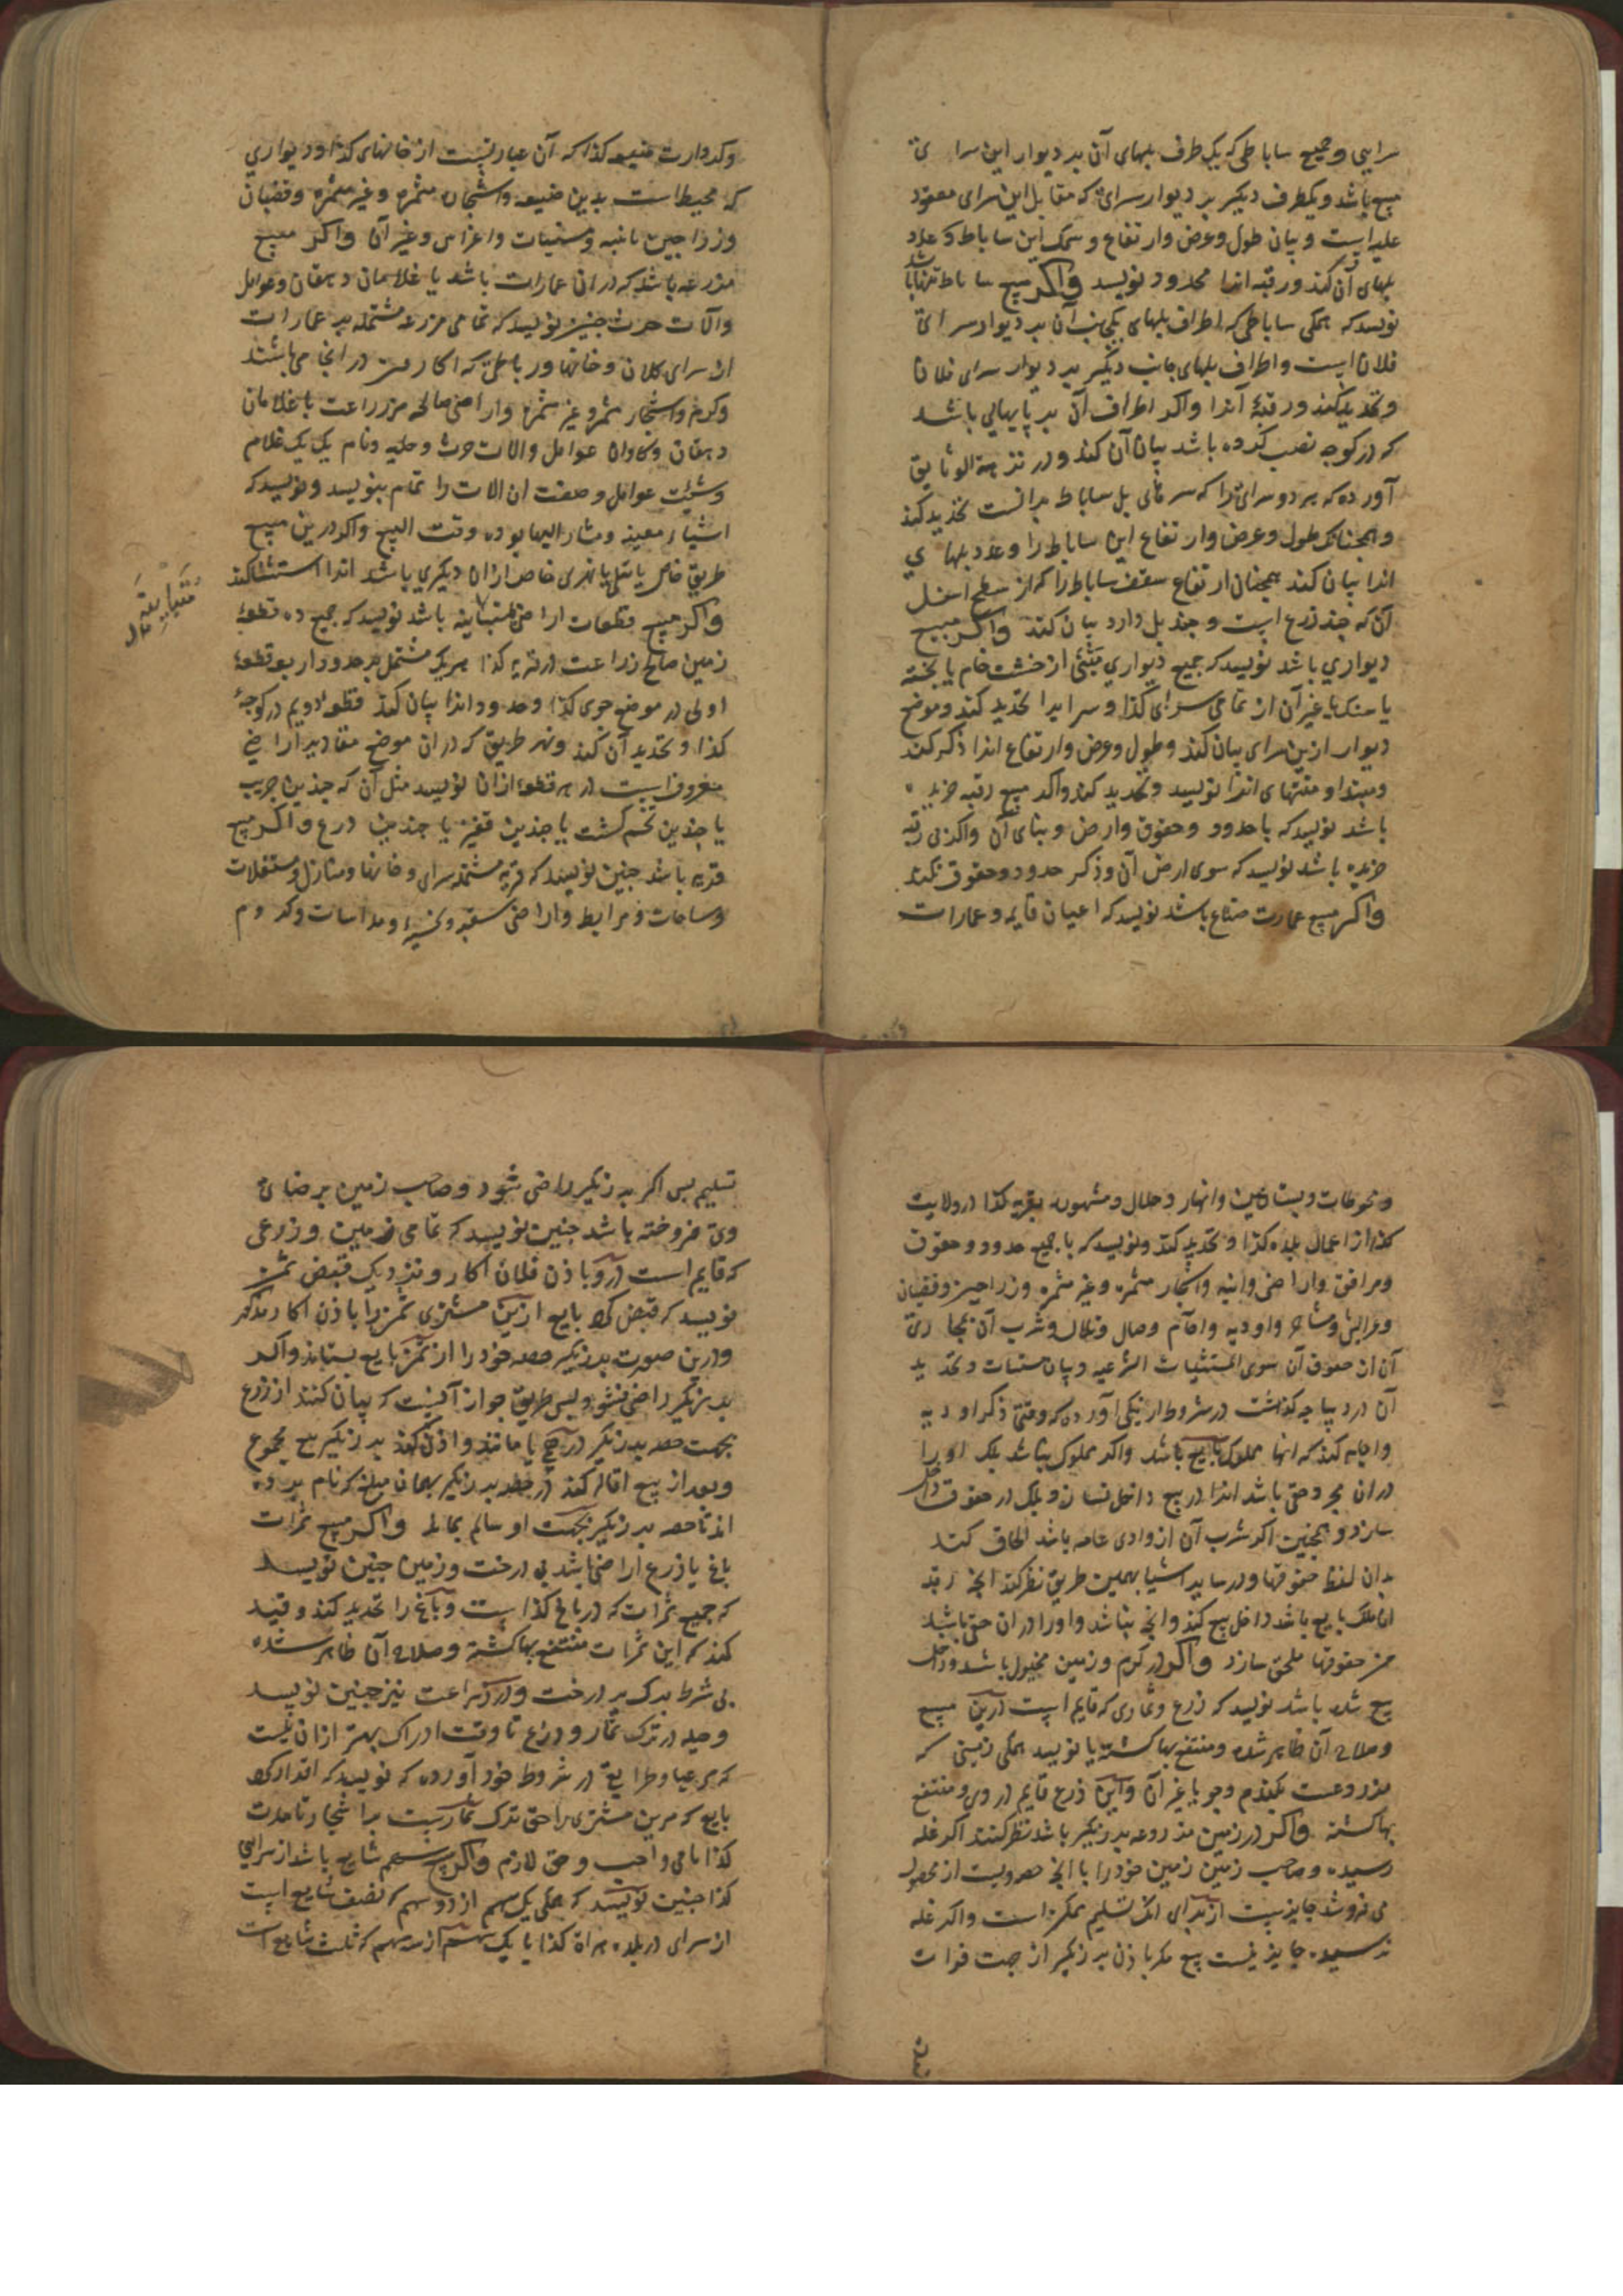 سرایی و جمیع ساباطی که یک طرف پلهای آن بر دیوار این سرا ئ
مبیع باشد و یکطرف دیگر بر دیوار سرائ که مقابل این سرای معقود
علیه است و بیان طول و عرض و ارتفاع و سمک این ساباط و عدد
پلهای آن کند و رقبه انرا محدود نویسد و اکر مبیع ساباط تنها باشد
نویسد که همکی ساباطی که اطراف پلهای یکجانب آن بر دیوار سرائ
فلان است و اطراف پلهای جانب دیکر بر دیوار سرای فلان
و تحدید کند و رقبهٔ آنرا و اکر اطراف آن بر پایهایی باشد
که در کوچه نصب کرده باشد بیان آن کند و در نزهة الوثایق
آورده که هر دو سرائ را که سر های پل ساباط برانست تحدید کند
و همچنانکه طول و عرض و ارتفاع این ساباط را و عدد پلها ی
انرا بیان کند همچنان ارتفاع سقف ساباط را که از سطح اسفل
آن که چند ذرع است و چند پل دارد بیان کند و اکر مبیع
دیواری باشد نویسد که جمیع دیواری مبنی از خشت خام یا پخته
یا سنک یا غیر آن از تمامی سرای کذا و سرا یرا تحدید کند و موضع
دیوار از ین سرای بیان کند و طول و عرض و ارتفاع انرا ذکر کند
و مبتدا و منتهای انرا نویسد و تحدید کند و اکر مبیع رقبه خریده
باشد نویسد که با حدود و حقوق و ارض و بنای آن و اکر بی رقبه
خریده باشد نویسد که سوی ارض آن و ذکر حدود و حقوق نکند
و اکر مبیع عمارت ضیاع باشد نویسد که اعیان قایمه و عمارات
و کردارت ضیعه کذا که آن عبارتست از خانهای کذا و دیواری
که محیط است بدین ضیعه و اشجار مثمره و غیر مثمره و قضبان
و زراجین و ابنیه و مسنیات و اغراس و غیر آن و اکر مبیع
مزرعه باشد که در ان عمارات باشد یا غلامان دهقان و عوامل
و آلات حرث چنین نویسد که تمامی مزرعه مشتمله بر عمارات
از سرای کلان و خانها و رباطی که اکار من در انجا می باشند
و کرم و اشجار مثمره و غیر مثمره و اراضی صالحه مزراعت با غلامان
دهقان و کاوان عوامل و الات حرث و حلیه و نام یک یک غلام
و شیت عوامل و صفت ان الات را تمام بنویسد و نویسد که
اشیاء معینه و مشار الیها بوده وقت البیع و اکر در ین مبیع
طریق خاص یا تلی یا نهری خاص از ان دیکری باشد انرا استثنا کند
و اکر مبیع قطعات اراضی متباینه باشد نویسد که جمیع ده قطعهٔ
زمین صالح زراعت در قریه کذا هر یک مشتمل بر حدود اربعه قطعهٔ
اولی در موضع جوی کذا و حدود انرا بیان کند قطعهٔ دویم در کوچهٔ
کذا و تحدید آن کند و بهر طریق که در ان موضع مقادیر اراضی
معروفست در هر قطعهٔ از ان نویسد مثل آن که چندین جریب
یا چندین تخم کشت یا چندین قفیز یا چندین ذرع و اکر مبیع
قریه باشد چنین نویسد که قریه مشتمله سرای و خانها و منازل و مستغلات
و ساحات و مرابط و اراضی سقیه و بخسیه و مداسات و کروم
متباینة
و محوطات و بساتین و انهار و حلال و مشهوره بقریه کذا در ولایت
کذا از اعمال بلده کذا و تحدید کند و نویسد که با جمیع حدود و حقوق
و مرافق و اراضی و ابنیه و اشجار مثمره و غیر مثمره و زراجین و قضبان
و عرایش و مشاجر و اودیه و آکام و تلال و شرب آن بمجا ری
آن از حقوق آن سوی المستثنیات الشرعیه و بیان مستثنیات و تحدید
آن در دیباچه کذاشت در شروط ارنیکی آورده که وقتی ذکر اودیه
و اجام کند که انها مملوک بایع باشد و اکر مملوک نباشد بلک اورا
در ان مجرد حقی باشد انرا در بیع داخل نسازد و بلک در حقوق داخل
سازد و همچنین اکر شرب آن از وادی عامه باشد الحاق کند
بدان لفظ حقوقها و در سایر اشیا بهمین طریق نظر کند انچه رقبه
ان ملک بایع باشد داخل بیع کند و انچه نباشد و اورا در ان حق باشد
من حقوقها ملحق سازد و اکر در کرم و زمین محصول باشد و داخل
بیع شده باشد نویسد که زرع و ثماری که قایم است در ین مبیع
و صلاح آن ظاهر شده و منتفع بها کشته یا نویسد همکی زمینی که
مزروعست بکندم و جو یا غیر آن و این ذرع قایم در وی و منتفع
بها کشته و اکر در زمین مزروعه برزیکر باشد نظر کنند اکر غله
رسیده و صاحب زمین زمین خودرا با انچه حصه ویست از محصول
می فروشد جایز ست از برای انک تسلیم ممکن است و اکر غله
نرسیده جایز نیست بیع مکر باذن برزیکر از جهت فوات
تسلیم پس اکر برزیکر راضی شود و صاحب زمین برضائ
وی فروخته باشد چنین نویسد که تمامی زمین و زرعی
که قایم است در و باذن فلان اکار و نزدیک قبض ثمن
نویسد که قبض کرد بایع ازین مشتری ثمن را باذن اکار مذکور
و درین صورت برزیکر حصه خودرا از ثمن بایع بستاند و اکر
برزیکر راضی نشود پس طریق جواز آنست که بیان کنند از زرع
بجهت حصه برزیکر و اذن کند برزیکر بیع مجموع
و بعد از بیع اقاله کند در حصه برزیکر بهمان مبلغ که نام برده
اند تا حصه برزیکر بجهت او سالم بماند و اکر مبیع ثمرات
باغ یا ذرع اراضی باشد بی درخت و زمین چنین نویسد
که جمیع ثمرات که در باغ کذا است و باغ را تحدید کند و قید
کند که این ثمرات منتفع بها کشته و صلاح آن ظاهر شده
بی شرط ترک بر درخت و در زراعت نیز چنین نویسد
و حیله در ترک ثمار و زرع تا وقت ادراک بهتر از ان نیست
که در شروط خود آورده که نویسد که اقرار کرد
بایع که مرین مشتری را حق ترک ثمارست بر اشجار تا مدت
کذا بامر واجب و حق لازم و اکر مبیع سهم شایع باشد از سرایی
کذا چنین نویسد که همکی یک سهم از دو سهم که نصف شایع است
از سرای در بلده هراة کذا یا یک سهم از سه سهم که ثلث شایع است